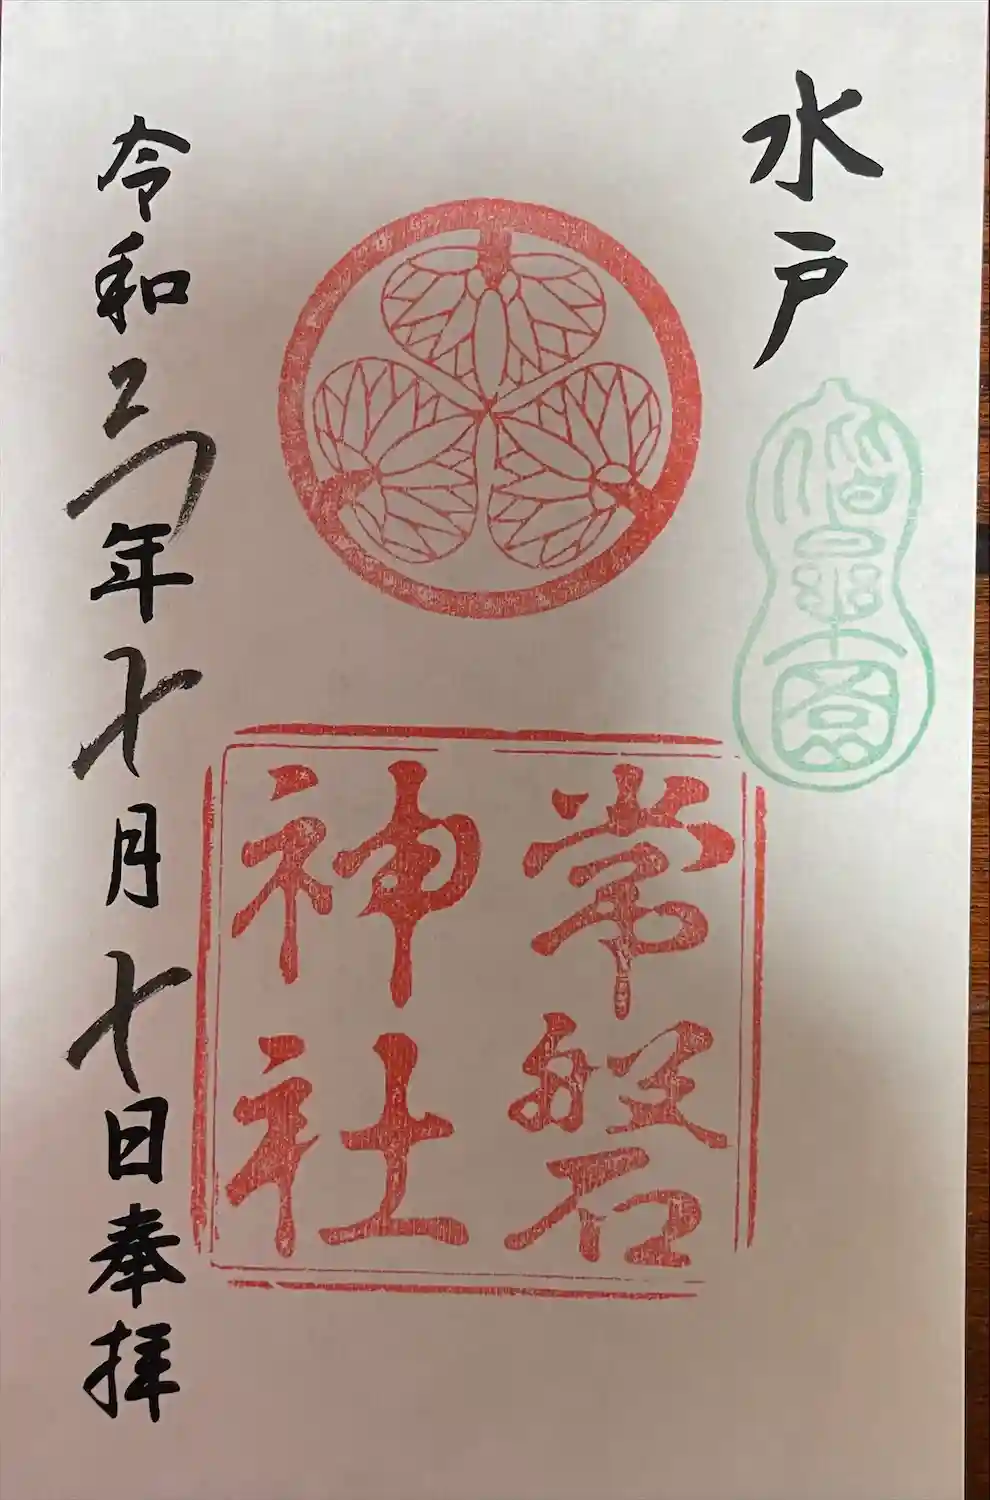 水戸
偕楽園
常磐
神社
令和 年 月 日奉拝